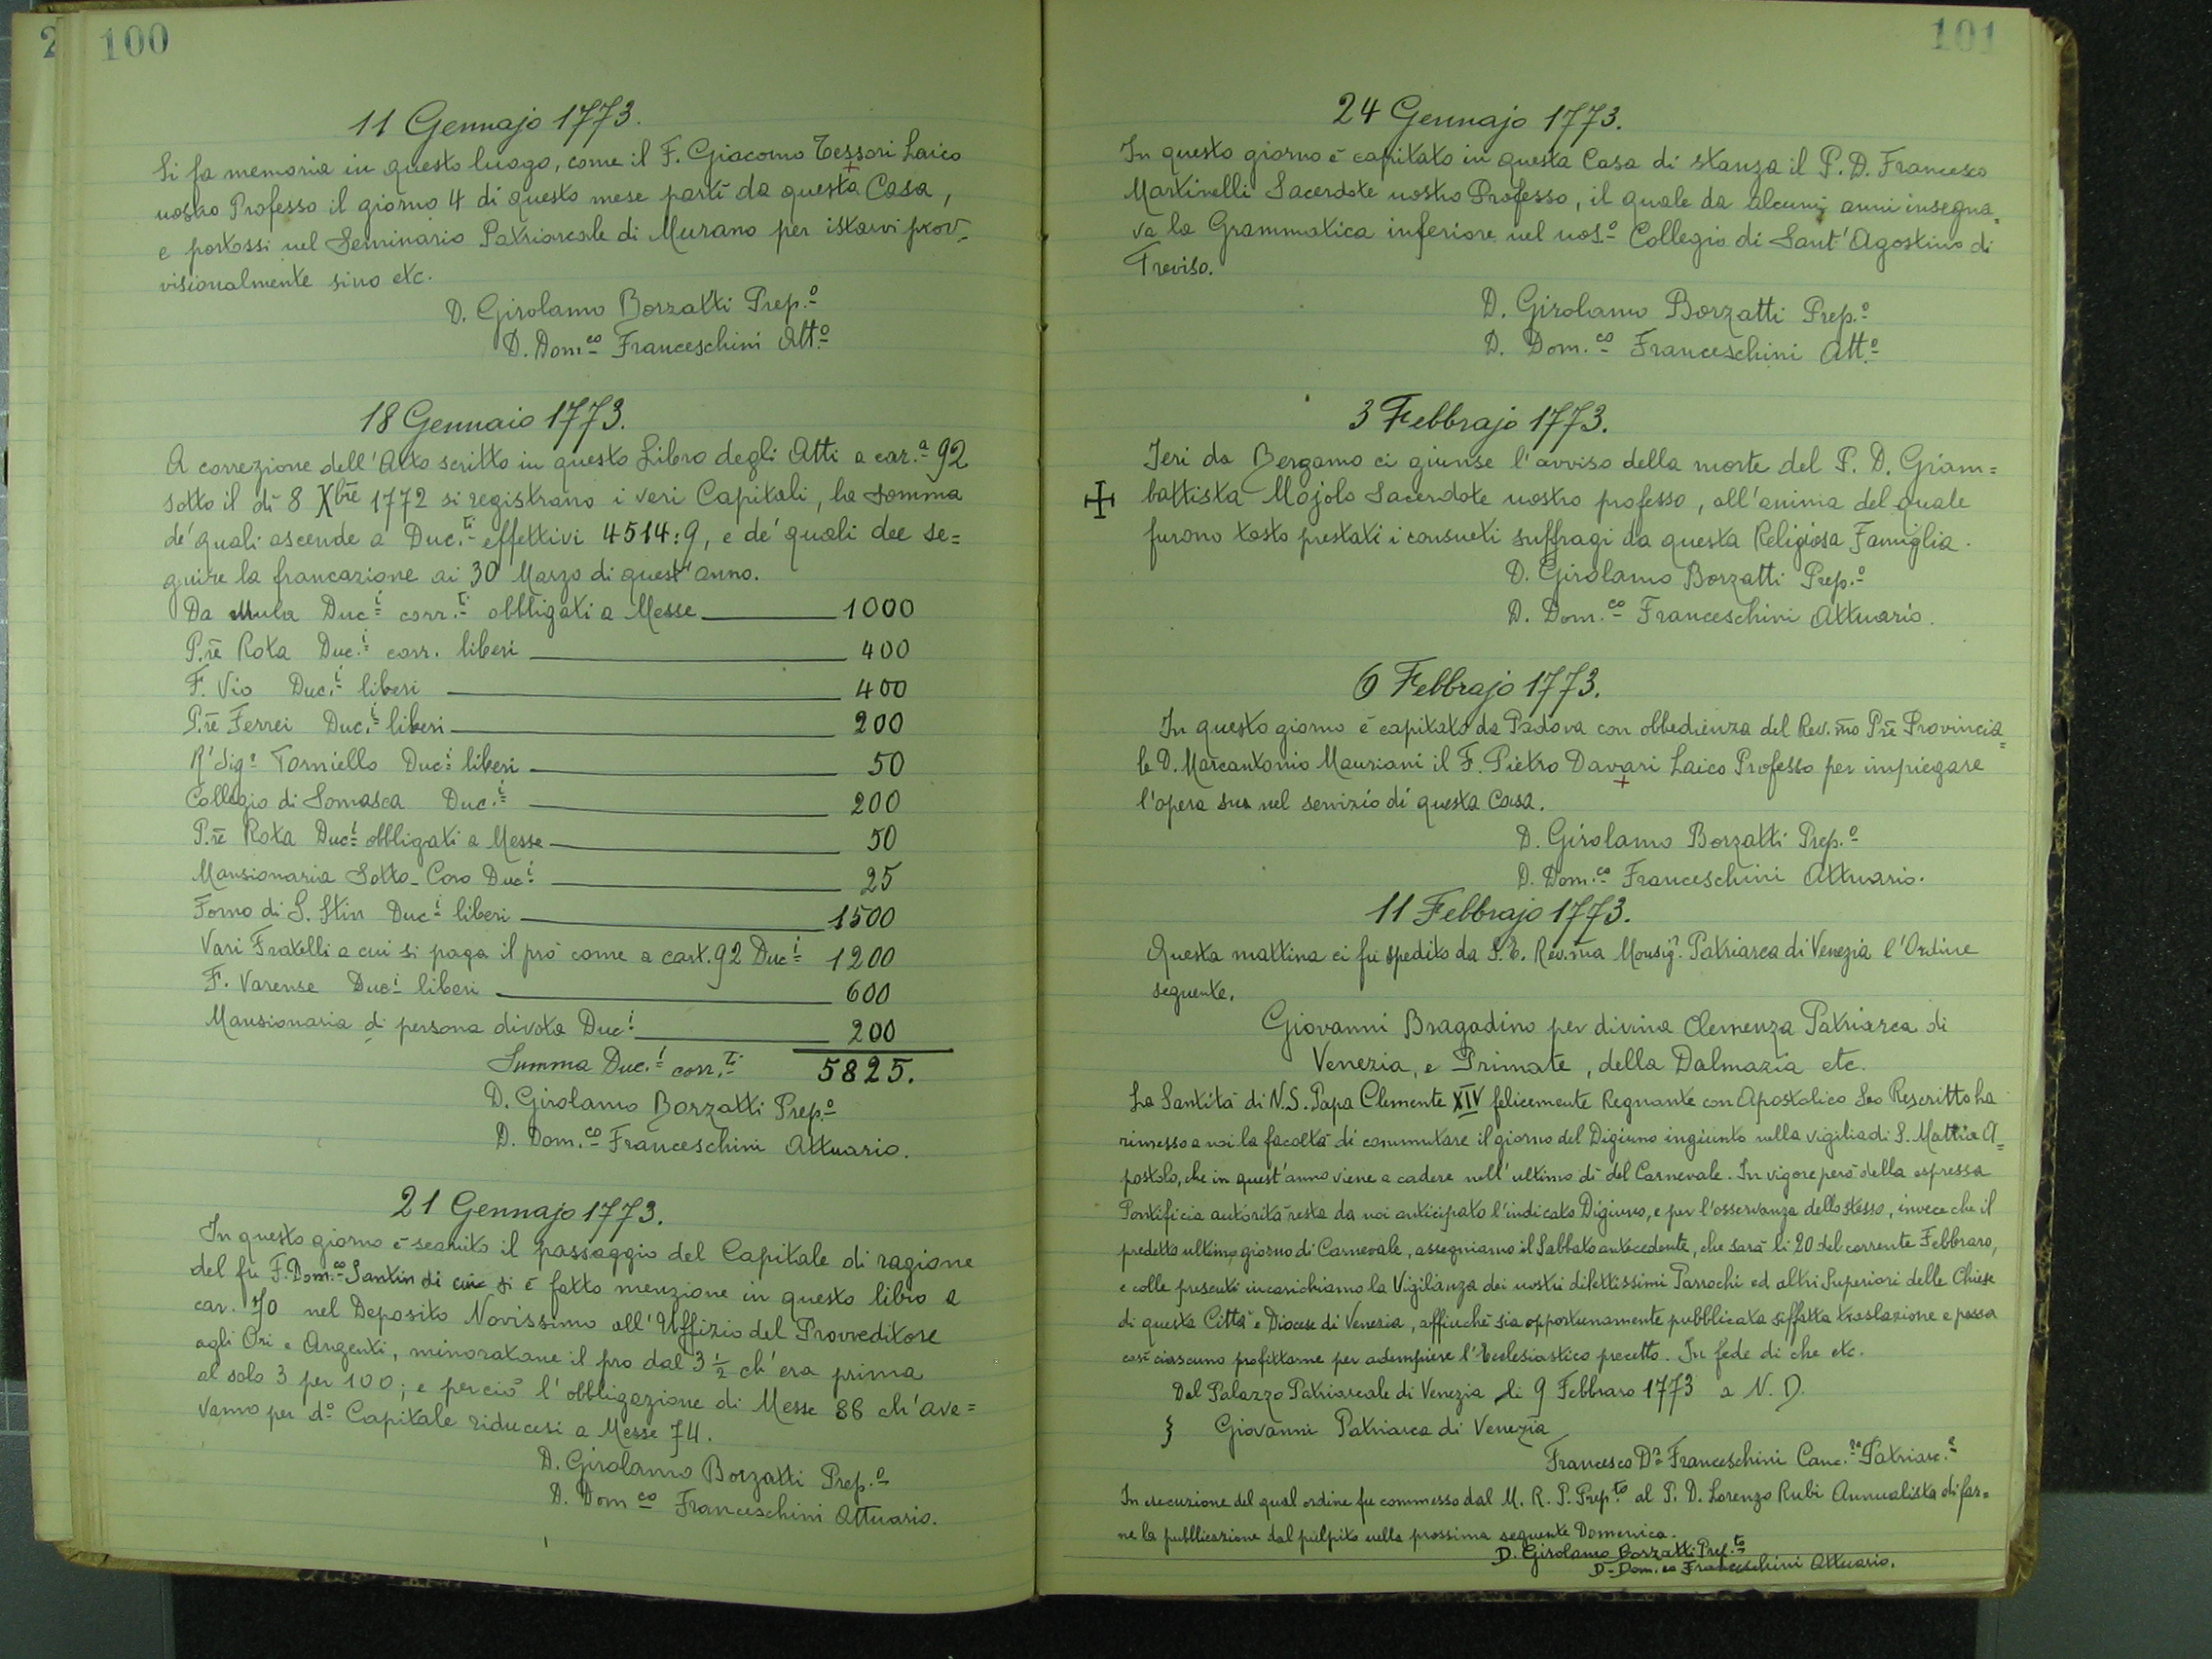 2
100
11 Gennajo 1773.
Si fa memoria in questo luogo, come il F. Giacomo Tessori Laico
nostro Professo il giorno 4 di questo mese partì da questa Casa,
e portossi nel Seminario Patriarcale di Murano per istarvi prov-
visionalmente sino etc.
D. Girolamo Borzatti Prep.o
D. Dom.co Franceschini Att.o
18 Gennaio 1773.
A correzione dell'Atto scritto in questo Libro degli Atti a car.a 92
sotto il dì 8 Xbre 1772 si registrano i veri Capitali, la somma
de' quali ascende a Duc.ti effettivi 4514:9, e de' quali dee se=
guire la francazione ai 30 Marzo di quest'anno.
Da Mula Duc.i corr.ti obbligati a Messe 1000
P.re Rota Duc.i corr. liberi 400
F. Vio Duc.i liberi 400
P.re Ferrei Duc.i liberi 200
R' Sig.r Torniello Duc.i liberi 50
Collegio di Somasca Duc.i 200
P.re Rota Duc.i obbligati a Messe 50
Mansionaria Sotto-Coro Duc.i 25
Forno di S. Stin Duc.i liberi 1500
Vari Fratelli a cui si paga il prò come a cart. 92 Duc.i 1200
F. Varense Duc.i liberi 600
Mansionaria di persona divota Duc.i 200
Summa Duc.i corr.ti 5825.
D. Girolamo Borzatti Prep.o
D. Dom.co Franceschini Attuario.
21 Gennajo 1773.
In questo giorno è seguito il passaggio del Capitale di ragione
del fu F. Dom.co Santin di cui si è fatto menzione in questo libro a
car. 70 nel Deposito Novissimo all'Uffizio del Provveditore
agli Ori e Argenti, minoratane il pro dal 3 1/2 ch'era prima
al solo 3 per 100; e perciò l'obbligazione di Messe 86 ch'ave=
vamo per d.o Capitale riducesi a Messe 74.
D. Girolamo Borzatti Prep.o
D. Dom.co Franceschini Attuario.
101
24 Gennajo 1773.
In questo giorno è capitato in questa Casa di stanza il P. D. Francesco
Martinelli Sacerdote nostro Professo, il quale da alcuni anni insegna=
va la Grammatica inferiore nel nos.o Collegio di Sant'Agostino di
Treviso.
D. Girolamo Borzatti Prep.o
D. Dom.co Franceschini Att.o
3 Febbrajo 1773.
Jeri da Bergamo ci giunse l'avviso della morte del P. D. Giam=
battista Mojolo Sacerdote nostro professo, all'anima del quale
furono tosto prestati i consueti suffragi da questa Religiosa Famiglia.
D. Girolamo Borzatti Prep.o
D. Dom.co Franceschini Attuario.
6 Febbrajo 1773.
In questo giorno è capitato da Padova con obbedienza del Rev.mo P.re Provincia=
le D. Marcantonio Mauriani il F. Pietro Davari Laico Professo per impiegare
l'opera sua nel servizio di questa Casa.
D. Girolamo Borzatti Prep.o
D. Dom.co Franceschini Attuario.
11 Febbrajo 1773.
Questa mattina ci fu spedito da S. E. Rev.ma Monsig.r Patriarca di Venezia l'Ordine
seguente.
Giovanni Bragadino per divina Clemenza Patriarca di
Venezia, e Primate, della Dalmazia etc.
La Santità di N.S. Papa Clemente XIV felicemente Regnante con Apostolico Suo Rescritto ha
rimesso a noi la facoltà di commutare il giorno del Digiuno ingiunto nella vigilia di S. Mattia A=
postolo, che in quest'anno viene a cadere nell'ultimo dì del Carnevale. In vigore però della espressa
Pontificia autorità resta da noi anticipato l'indicato Digiuno, e per l'osservanza dello stesso, invece che il
predetto ultimo giorno di Carnevale, assegniamo il Sabbato antecedente, che sarà li 20 del corrente Febbraro,
e colle presenti incarichiamo la Vigilanza dei nostri dilettissimi Parrochi ed altri Superiori delle Chiese
di questa Città e Diocese di Venezia, affinchè sia opportunamente pubblicata siffatta traslazione e possa
così ciascuno profittarne per adempiere l'Ecclesiastico precetto. In fede di che etc.
Dal Palazzo Patriarcale di Venezia li 9 Febbraro 1773 a N. D.
Giovanni Patriarca di Venezia
Francesco D.r Franceschini Canc.re Patriarc.e
In esecuzione del qual ordine fu commesso dal M. R. P. Prep.to al P. D. Lorenzo Rubi Annualista di far=
ne la pubblicazione dal pulpito nella prossima seguente Domenica.
D. Girolamo Borzatti Prep.to
D. Dom.co Franceschini Attuario.